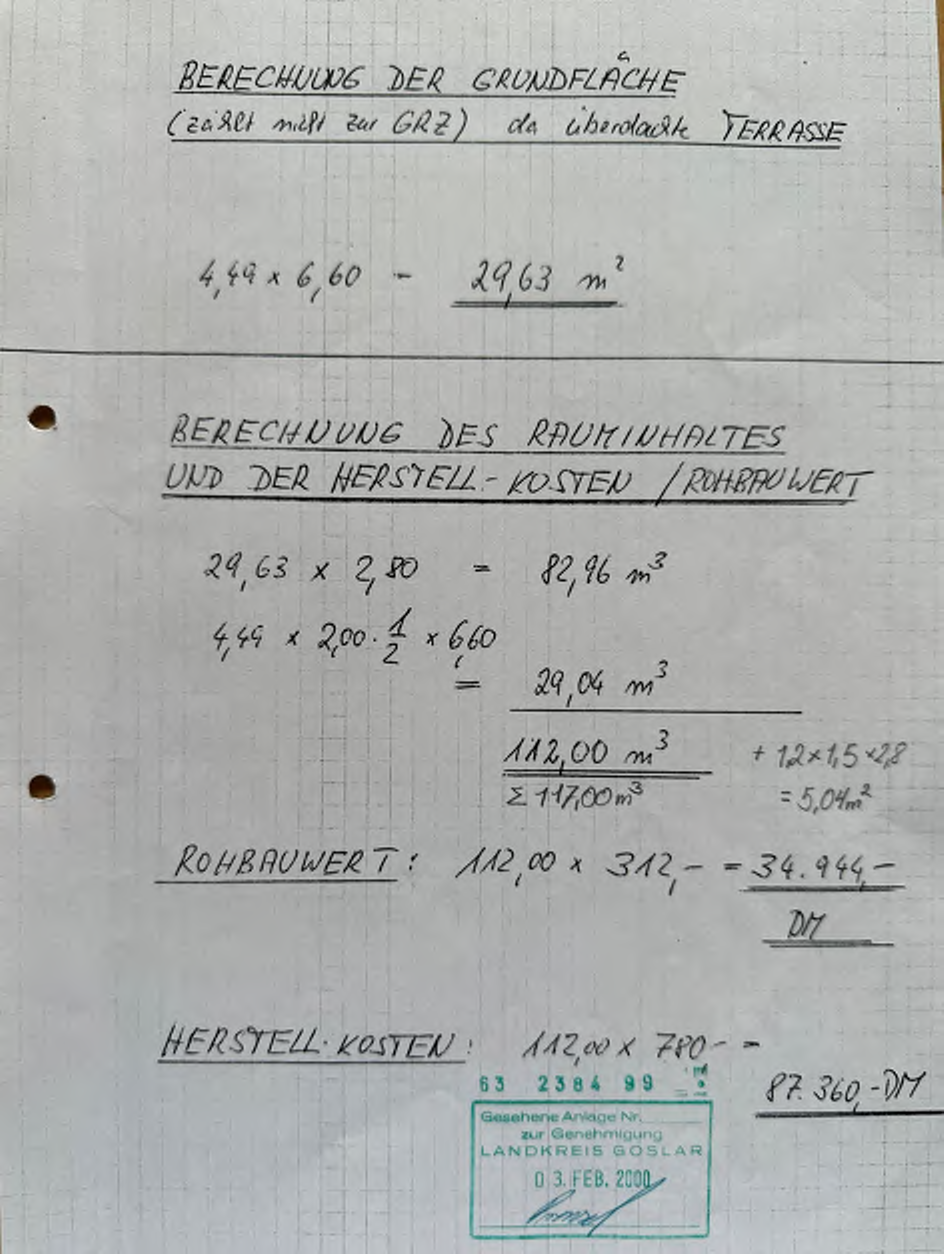 BERECHNUNG DER GRUNDFLÄCHE
(zählt nicht zur GRZ) da überdachte TERRASSE
4,49 x 6,60 - 29,63 m²
BERECHNUNG DES RAUMINHALTES
UND DER HERSTELL.-KOSTEN / ROHBAUWERT
29,63 x 2,80 = 82,96 m³
4,49 x 2,00 · 1/2 x 6,60
= 29,04 m³
112,00 m³ + 1,2 x 1,5 x 2,8
Σ 117,00 m³ = 5,04 m²
ROHBAUWERT: 112,00 x 312,- = 34.944,-
DM
HERSTELL.KOSTEN: 112,00 x 780- =
87.360,-DM
63 2384 99
Gesehene Anlage Nr.
zur Genehmigung
LANDKREIS GOSLAR
03. FEB. 2000